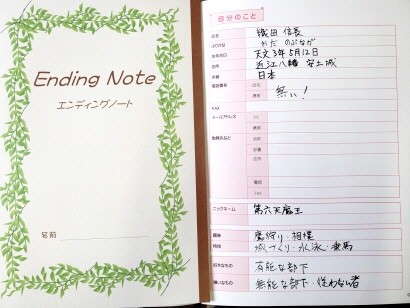 Ending Note
エンディングノート
名前
自分のこと
氏名 織田 信長
ふりがな おだ のぶなが
生年月日 天文3年5月12日
住所 近江八幡 安土城
本籍 日本
電話番号 自宅 無い!
携帯
FAX
メールアドレス PC
携帯
勤務先など 名称
部署
住所
電話
FAX
ニックネーム 第六天魔王
趣味 鷹狩り・相撲
特技 城づくり・水泳・乗馬
好きなもの 有能な部下
嫌いなもの 無能な部下・従わない者